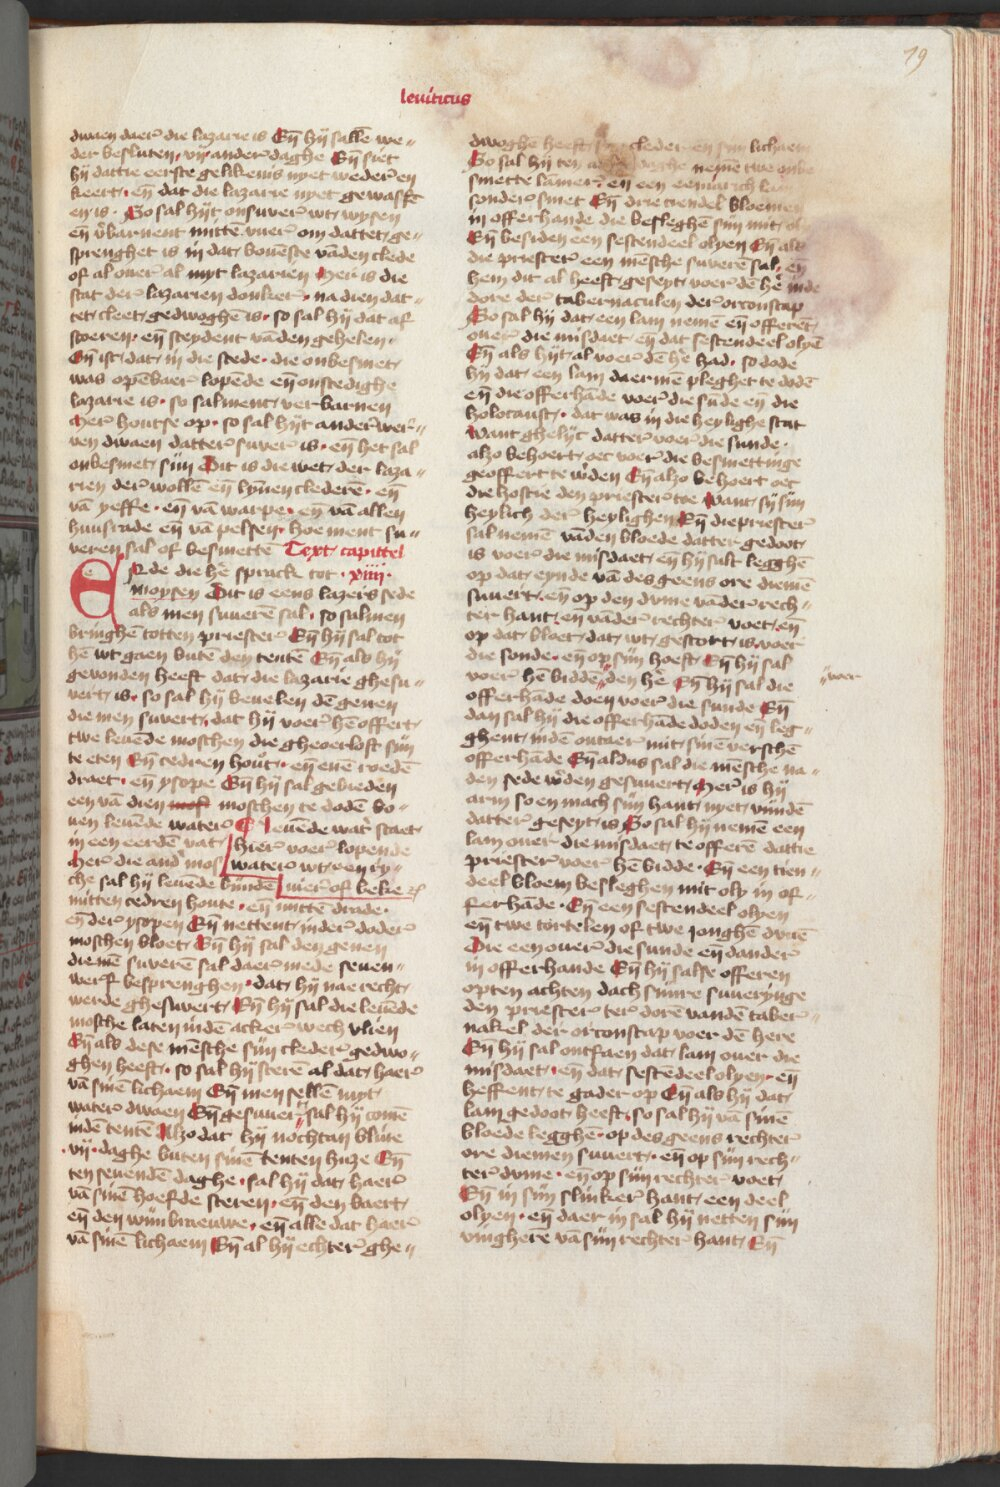 79
leuiticus
dwaen daer die lazarie is En̄ hij sallē we=
der besluten· vij· ander daghe En̄ siet
hij dattie eerste gelikenis nyet weder en
keert· en̄ dat die lazarie nyet gewasst
en is· So sal hijt onsuuer wt wysen
en̄ v̄barnent mitte vuer om dattet ge=
sprenghet is in dat bouenste vādē clede
of al ouer al myt lazarien Mer is die
stat der lazarien donker· na dien dat=
tet cleet gedwoghē is· so sal hij dat af
scoeren· en̄ steydent vādē gehelen·
En̄ ist dat in die stede· die onbesmet
was opēbaer lopēde en̄ onstedighe
lazarie is· so salment verbarnen
Mer houtse op· so sal hijt anderwer=
uen dwaen datter suuer is· en̄ het sal
onbesmet sijn Dit is die wet der laza=
rien der wollē en̄ lynen clederē· en̄
vā yeffe· en̄ vā warpe· en̄ vā allen
huusrade en̄ vā pelsen· hoe ment su=
ueren sal of besmette Text capittel
ERde die hē sprack tot ·xiiii·
moysen Dit is eens lazers sede
als men suuerē sal· so salmen
bringhē totten priester En̄ hij sal tot
hē wt gaen butē den tentē En̄ als hij
geuonden heeft dat die lazarie ghesu=
uert is· so sal hij beuelen dē genen
die men suuert· dat hij voer hē offert
twe leuēde moschen die gheoerloft sijn
te eten En̄ cedren hout· en̄ enē roedē
draet· en̄ ysope En̄ hij sal gebieden
een vā dien mosc moschen te dodē bo=
uen leuēde water leuēde wat staet
in een eerdē vat hier voer lopende
Mer die and mos water wt een ry=
che sal hij leuēde binden uier of beke
mitten cedren houte· en̄ mittē drade·
en̄ der ysopen En̄ nettent in der doder
moschen bloet En̄ hij sal den genen
diemē suuerē sal daer mede seuen=
werf besprenghen· dat hij nae recht
werde ghesuuert En̄ hij sal die leuēde
mosche laten indē acker wech vlien
En̄ als dese mēsche sijn cleder gedwo=
ghen heeft· so sal hij sterē al dat haer
vā sinē lichaem En̄ men sellē myt
water dwaen En̄ gesuuert sal hij comē
indē tentē Alzo dat hij nochtan bliue
·vij· daghe buten sinē tenten huze En̄
ten seuendē daghe· sal hij dat haer
vā sinē hoefde steren· en̄ den baert
en̄ den wijnbrauwe· en̄ alle dat haer
vā sinē lichaem En̄ al hij echter ghe=
dwoghē heeft cleder en sijn lichaem
So sal hij ten daghe nemē twe onbe
smette lāmer· en een eeniarich lam
sonder smet En̄ drie tiendel bloemen
in offerhande die besleghē sijn mit
En̄ besiden een sestendeel olyen En̄ als
die priester een mēsche suuerē sal· en̄
hem dit al heeft geseyt voer dē hē inde
dore der tabernaculen der orconscap
So sal hij dat een lam nemē en̄ offerēt
ouer die misdaet en̄ dat sestendeel olyē
En̄ als hijt al voer dē hē had· so dode
hij dat een lam daermē pleghet te dodē
en̄ die offerhāde voer die sūde en̄ die
holocaust· dat was in die heylighe stat
Want ghelijc datter voer die sunde·
alzo behoert oec voer die besmettinge
geoffert te w̄den En̄ alzo behoert oec
die hostie den priester toe Want sij sijn
heylich der heylighen En̄ die priester
sal nemē vādē bloede datter gedoot
is voer die misdaet en̄ hij salt legghē
op dat eynde vā des geens ore diemē
suuert· en̄ op den dume vāder rech=
ter hant en̄ vāder rechter voet en̄
op dat bloet dat wt gestort is voer
die sonde· en̄ op sijn hoeft En̄ hij sal
voer hē biddē den hē En̄ hij sal die
=voer
offerhāde doen voer die sunde En̄
dan sal hij die offerhāde doden en̄ leg=
ghent indē outaer mit sinē verschē
offerhāde En̄ aldus sal die mēsche na=
den sede w̄den gesuuert Mer is hij
arm so en mach sijn hant nyet vindē
datter geseyt is So sal hij nemē een
lam ouer die misdaet te offerē dattie
priester voer hē bidde· En̄ een tien=
deel bloem besleghen mit oly in of=
ferhāde· En̄ een sestendeel olyen
en̄ twe tortelen of twe jonghē duuē
Die een ouer die sunde en̄ dander
in offerhande En̄ hij salse offeren
opten achten dach sijnre suuerynge
den priester ter dorē vandē taber=
nakel der orconscap voer dē here
En̄ hij sal ontfaen dat lam ouer die
misdaet· en̄ dat sestēdeel olyen· en̄
heffent te gader op En̄ als hij dat
lam gedoot heeft· so sal hij vā sinē
bloede legghē· op des geens rechter
ore diemen suuert· en̄ op sijn rech=
ter dume· en̄ op sijn rechter voet
En̄ in sijn slinker hant een deel
olyen· en̄ daer in sal hij netten sijn
vingherē vā sijn rechter hant En̄